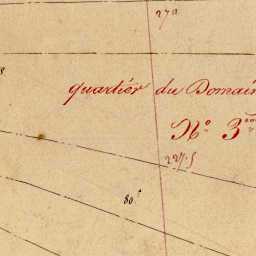 270
8
quartier du Domain
No. 3
227.5
80